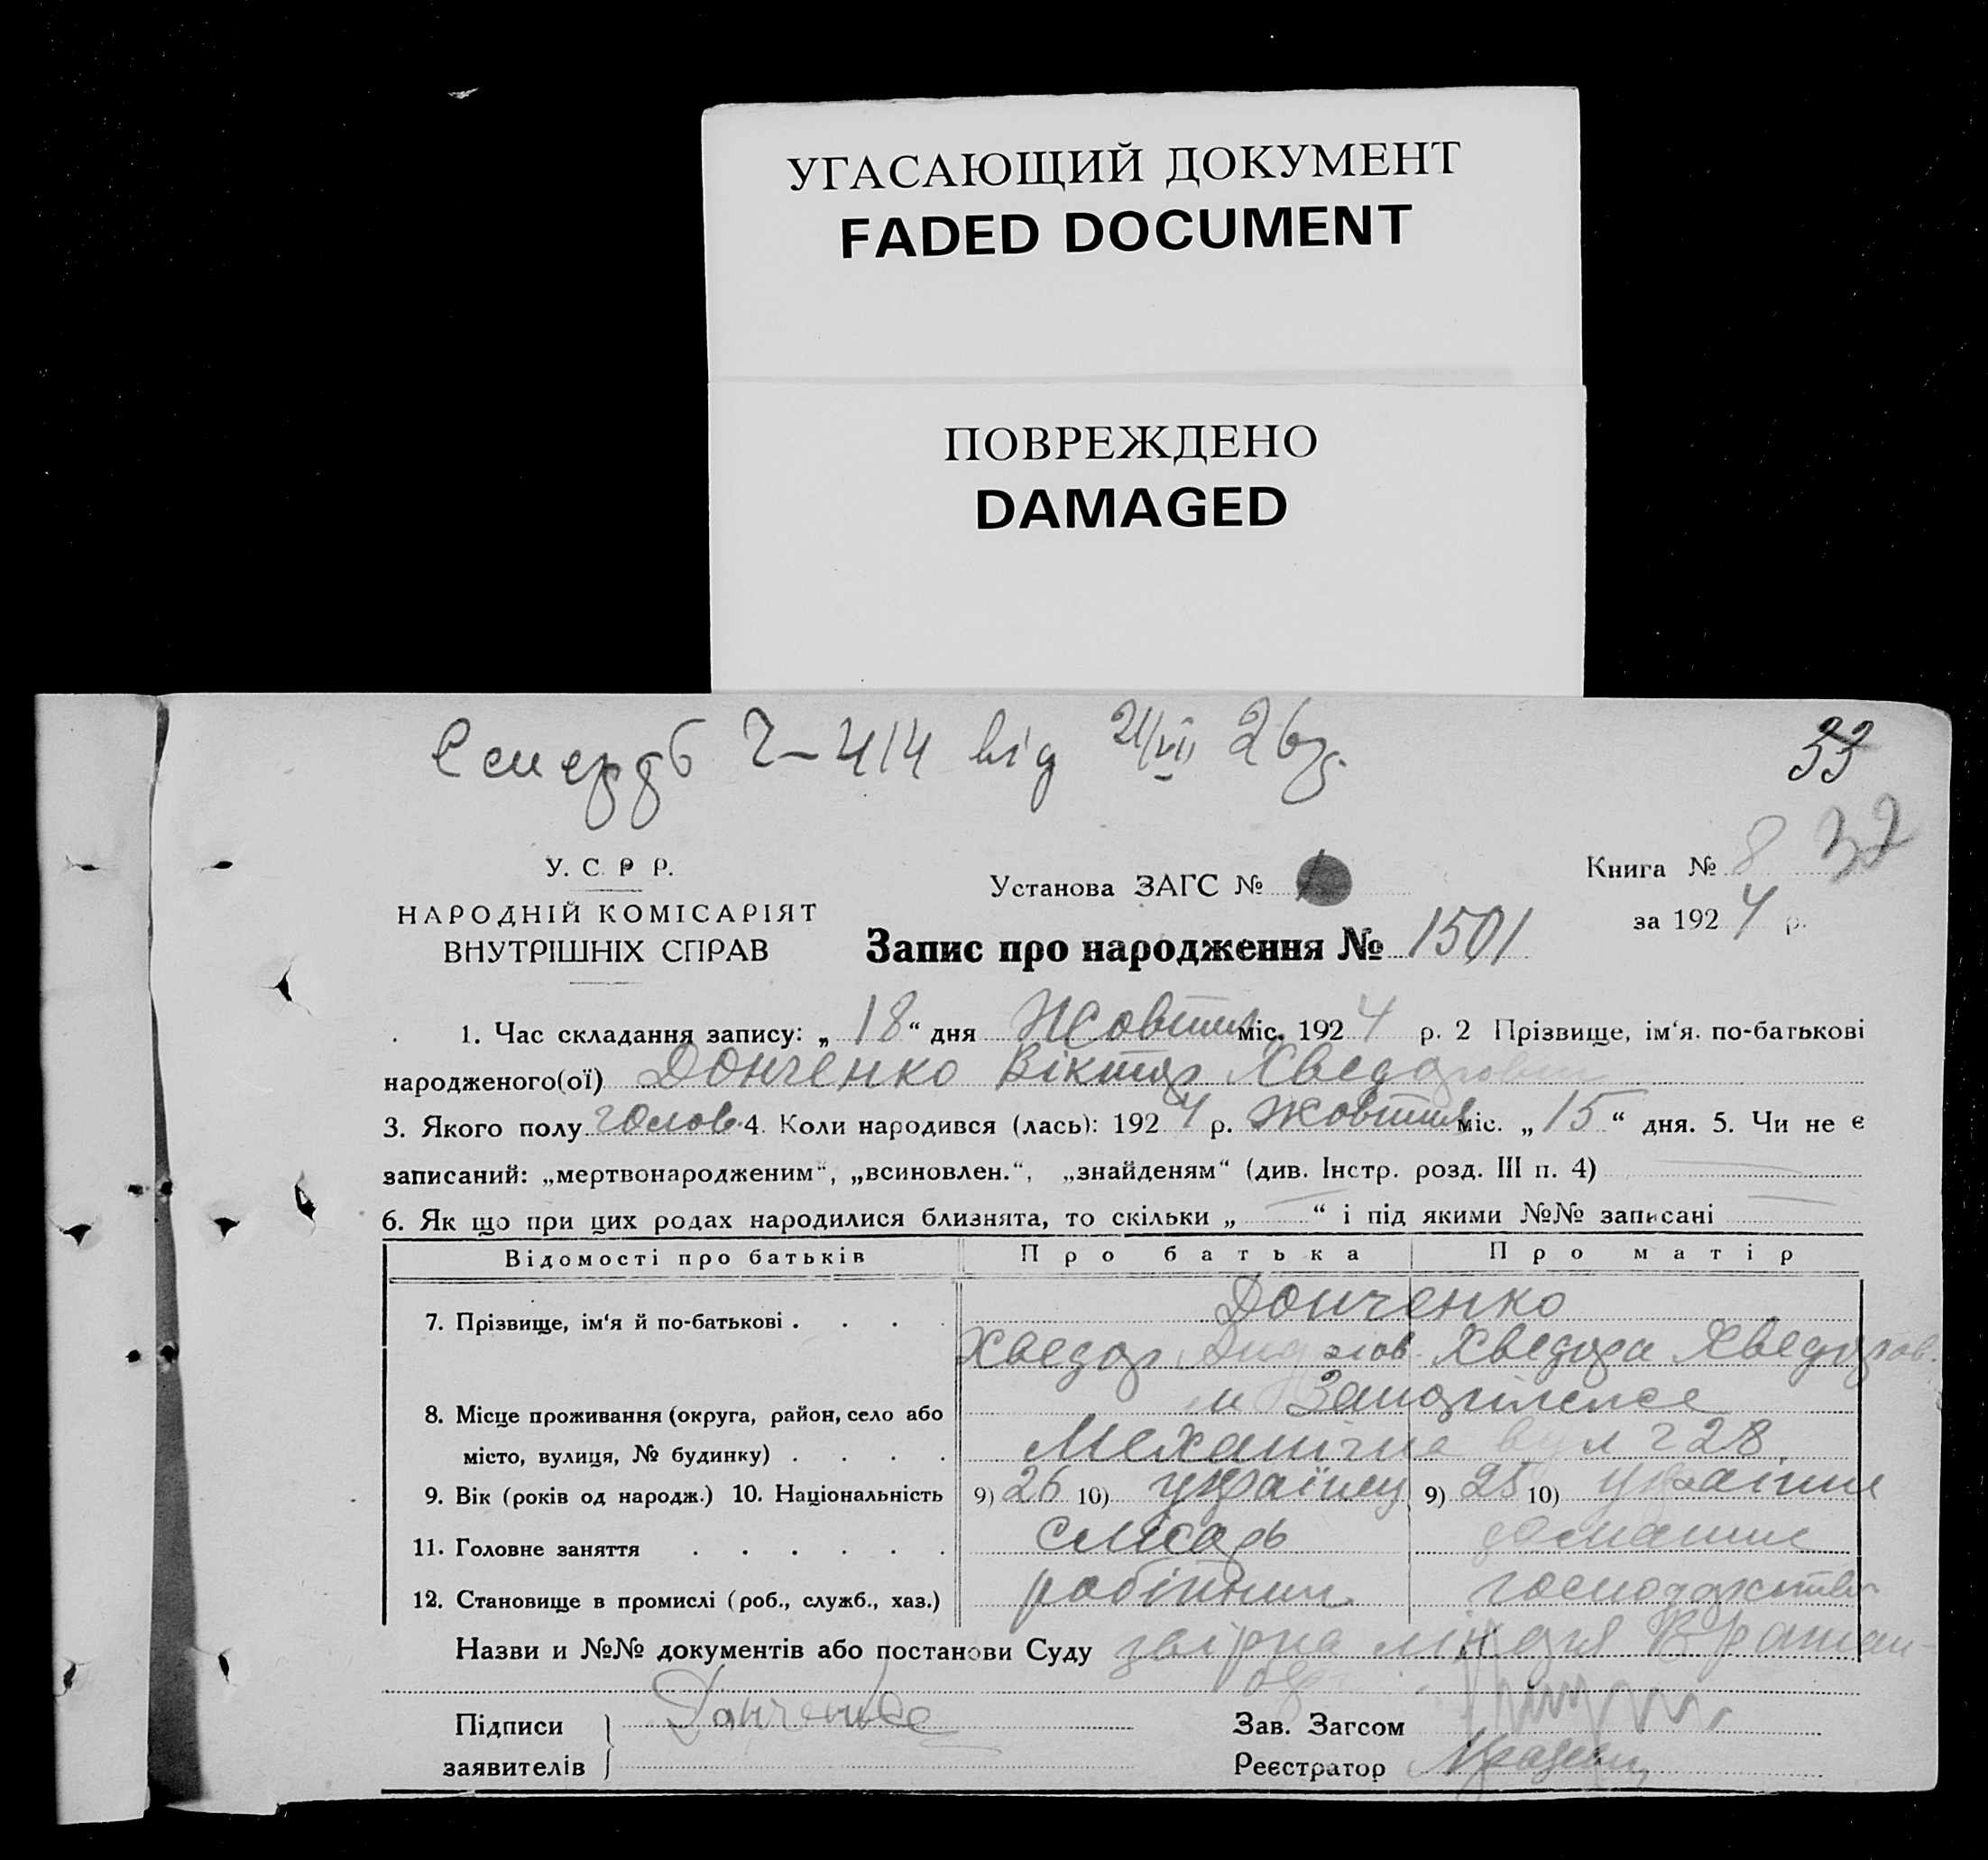 УГАСАЮЩИЙ ДОКУМЕНТ
FADED DOCUMENT
ПОВРЕЖДЕНО
DAMAGED
від 21/VII 26р.
33
32
У. С. Р Р.
НАРОДНІЙ КОМІСАРІЯТ
ВНУТРІШНІХ СПРАВ
Установа ЗАГС № 1
Книга № 8
за 1924 р.
Запис про народження № 1501
1. Час складання запису: „ 18 “ дня Жовтня міс. 1924 р. 2 Прізвище, ім‘я. по-батькові
народженого(ої) Донченко Віктор Хведорович
3. Якого полу чолов. 4. Коли народився (лась): 1924 р. Жовтня міс. „ 15 “ дня. 5. Чи не є
записаний: „мертвонародженим“, „всиновлен.“, „знайденям“ (див. Інстр. розд. III п. 4)
6. Як що при цих родах народилися близнята, то скільки „ — “ і під якими №№ записані —
Відомості про батьків Про батька Про матір
7. Прізвище, ім‘я й по-батькові . . . . Донченко
Хведор Хведора Хведоров.
8. Місце проживання (округа, район, село або м Запоріжже
місто, вулиця, № будинку) . . . . Механічна вул ч 28
9. Вік (років од народж.) 10. Національність 9) 26 10) українец 9) 25 10) українка
11. Головне заняття . . . . . . слюсарь домашнє
12. Становище в промислі (роб., служб., хаз.) робітник господарство
Назви и №№ документів або постанови Суду
Підписи
заявителів
Донченко
Зав. Загсом
Реєстратор